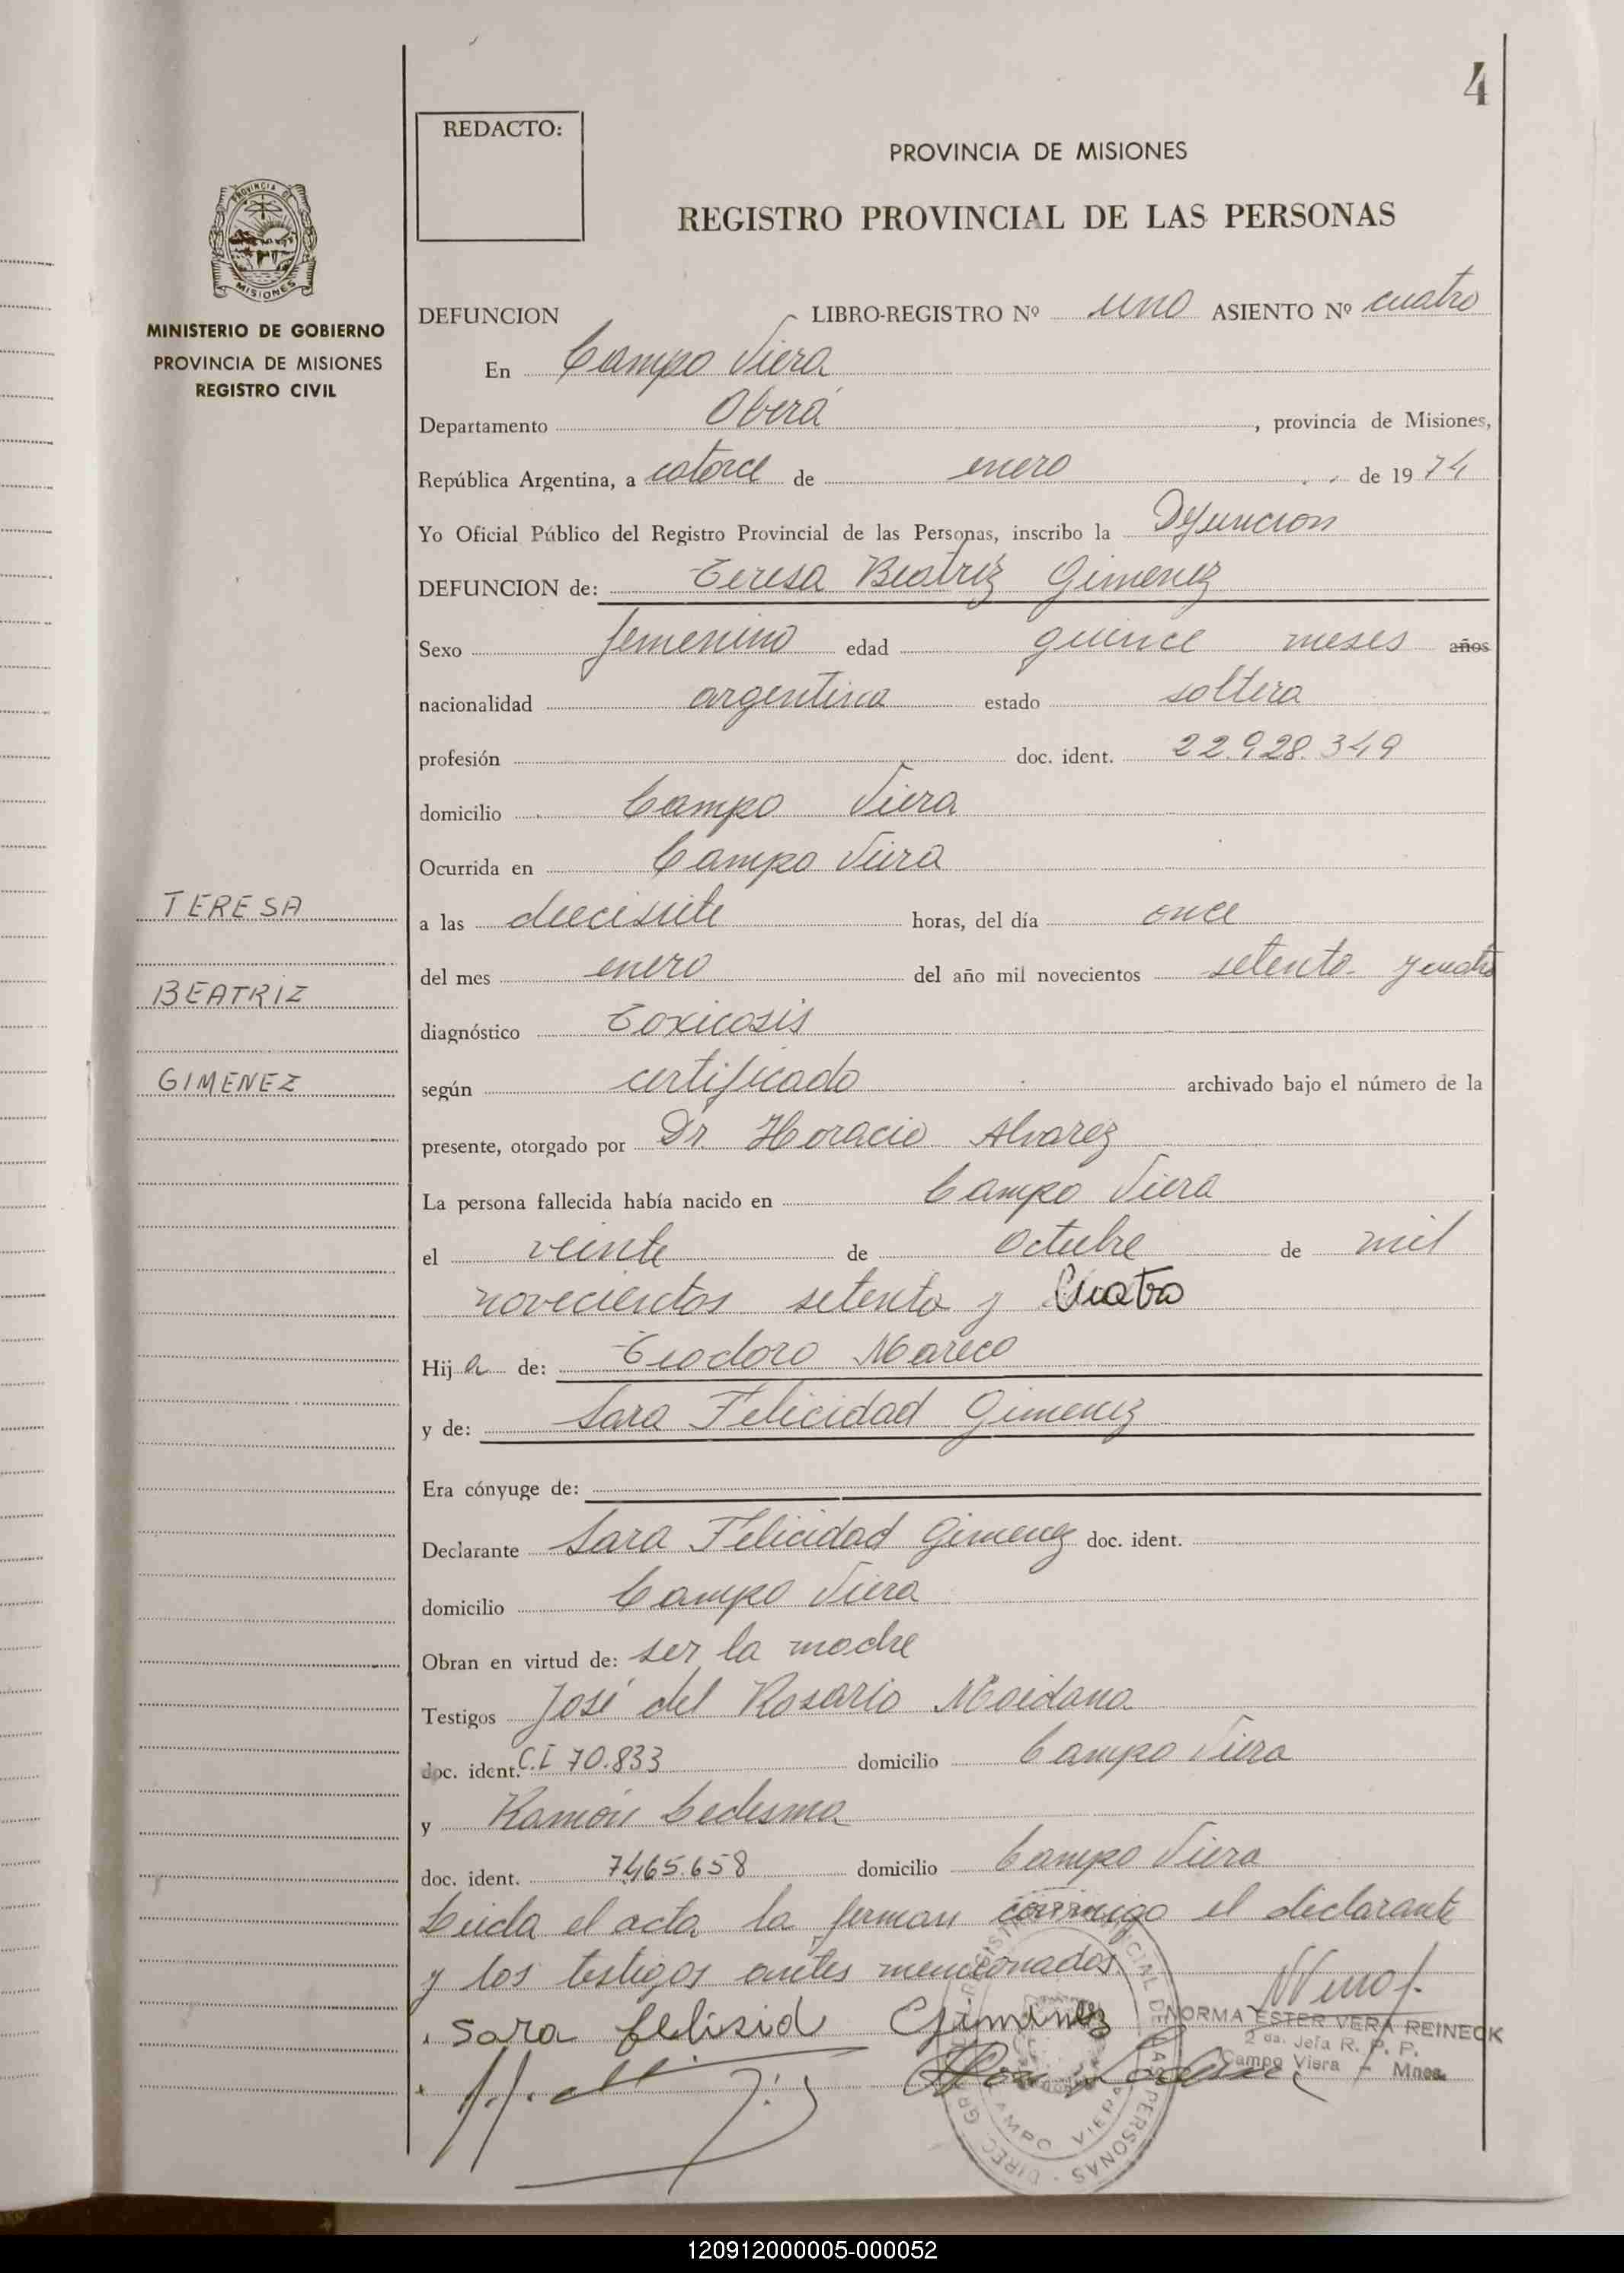 4
REDACTO:
PROVINCIA DE MISIONES
REGISTRO PROVINCIAL DE LAS PERSONAS
PROVINCIA DE
MISIONES
MINISTERIO DE GOBIERNO
PROVINCIA DE MISIONES
REGISTRO CIVIL
TERESA
BEATRIZ
GIMENEZ
DEFUNCION LIBRO-REGISTRO Nº uno ASIENTO Nº cuatro
En Campo Viera
Departamento Oberá, provincia de Misiones,
República Argentina, a catorce de enero de 1974
Yo Oficial Público del Registro Provincial de las Personas, inscribo la Defuncion
DEFUNCION de: Teresa Beatriz Gimenez
Sexo femenino edad quince meses años
nacionalidad argentina estado soltera
profesión doc. ident. 22.928.349
domicilio Campo Viera
Ocurrida en Campo Viera
a las diecisiete horas, del día once
del mes enero del año mil novecientos setenta y cuatro
diagnóstico Toxicosis
según certificado archivado bajo el número de la
presente, otorgado por Dr Horacio Alvarez
La persona fallecida había nacido en Campo Viera
el veinte de octubre de mil
novecientos setenta y Cuatro
Hija de: Teodoro Mareco
y de: Sara Felicidad Gimenez
Era cónyuge de:
Declarante Sara Felicidad Gimenez doc. ident.
domicilio Campo Viera
Obran en virtud de: ser la madre
Testigos José del Rosario Maidana
doc. ident. C.I 70.833 domicilio Campo Viera
y Ramón Ledesma
doc. ident. 7.465.658 domicilio Campo Viera
Leida el acta la firman conmigo el declarante
y los testigos antes mencionados
sara felisid Gimenez
NORMA ESTER VERA REINECK
2 da. Jefa R. P. P.
Campo Viera - Mnes.
120912000005-000052